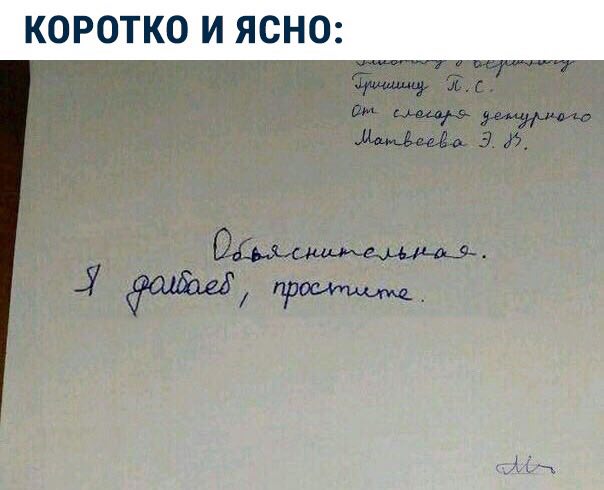 КОРОТКО И ЯСНО:
Гришину П.С.
от слесаря дежурного
Матвеева Э.В.
Объяснительная.
Я далбаеб, простите.